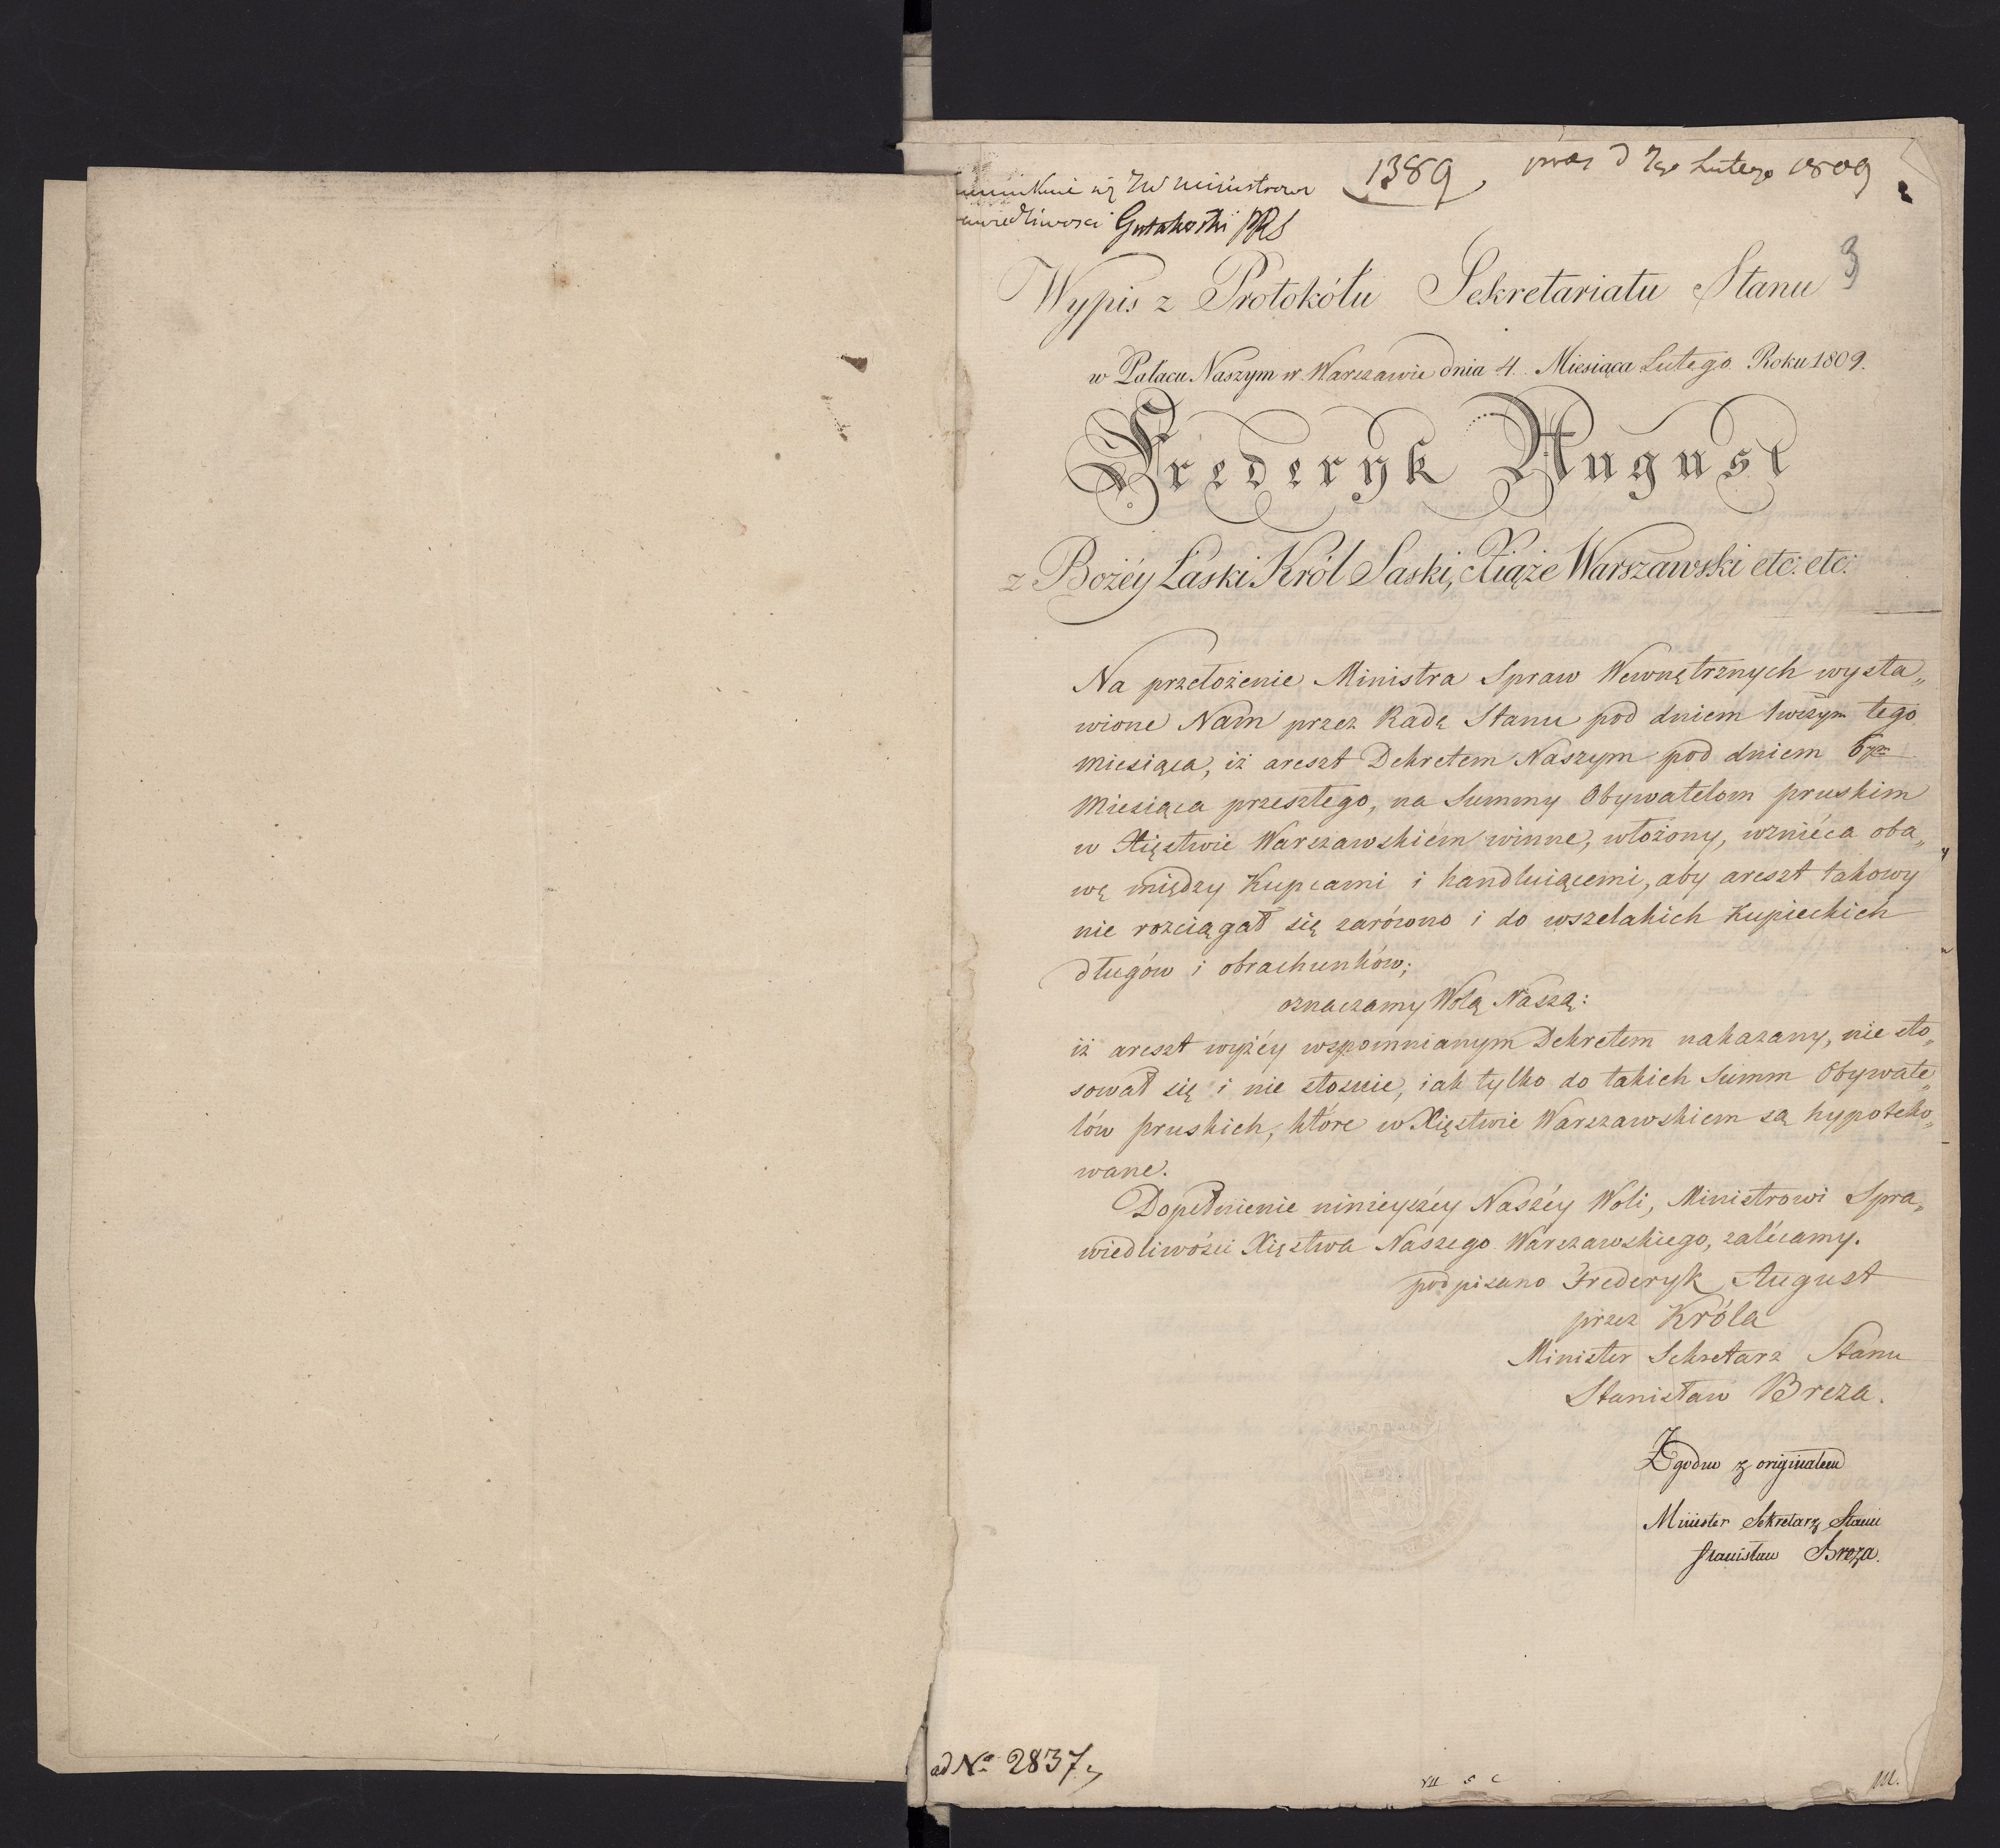 1389
d 7go Lutego 1809
JW Ministrowi
Gutakowski PRS
3
Wypis z Protokółu Sekretariatu Stanu
w Pałacu Naszym w Warszawie dnia 4. Miesiąca Lutego Roku 1809.
Frederyk August
z Bożéy Łaski Król Saski, Xiąże Warszawski etc: etc:
Na przełożenie Ministra Spraw Wewnętrznych wysta„
wione Nam przez Radę Stanu pod dniem 1wszym tego
Miesiąca, iż areszt Dekretem Naszym pod dniem
Miesiąca przeszłego, na Summy Obywatelom pruskim
w Xięstwie Warszawskiém winne, włożony, wzniéca oba„
wę między Kupcami i handluiącemi, aby areszt takowy
nie rozciągał się zarówno i do wszelakich Kupieckich
długów i obrachunków;
oznaczamy Wolą Naszą:
iż areszt wyżéy wspomnianym Dekretem nakazany, nie sto„
sował się i nie stosuie, iak tylko do takich Summ Obywate„
lów pruskich, które w Xięstwie Warszawskiem są hypoteko„
wane.
Dopełnienie ninieyszéy Naszéy Woli, Ministrowi Spra„
wiedliwości Xięstwa Naszego Warszawskiego, zalécamy.
podpisano Frederyk August
przez Króla
Minister Sekretarz Stanu
Stanisław Breza.
Zgodno z originałem
Minister Sekretarz Stanu
Stanisław Breza.
ad No 2837